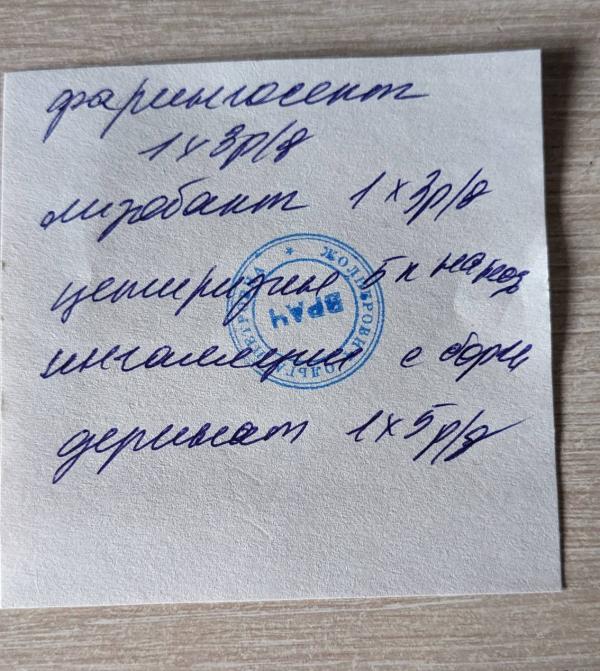 фарингосепт
1 х 3р/д
лизобакт 1 х 3р/д
цетиризин 5 к на ноч
ингаляции с борж
деринат 1 х 5р/д
ВРАЧ